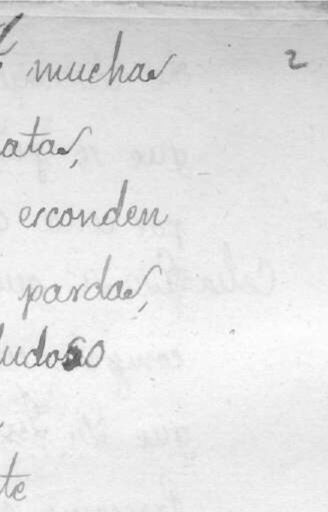 muchas 2
atas,
esconden
pardas,
ludoso
te